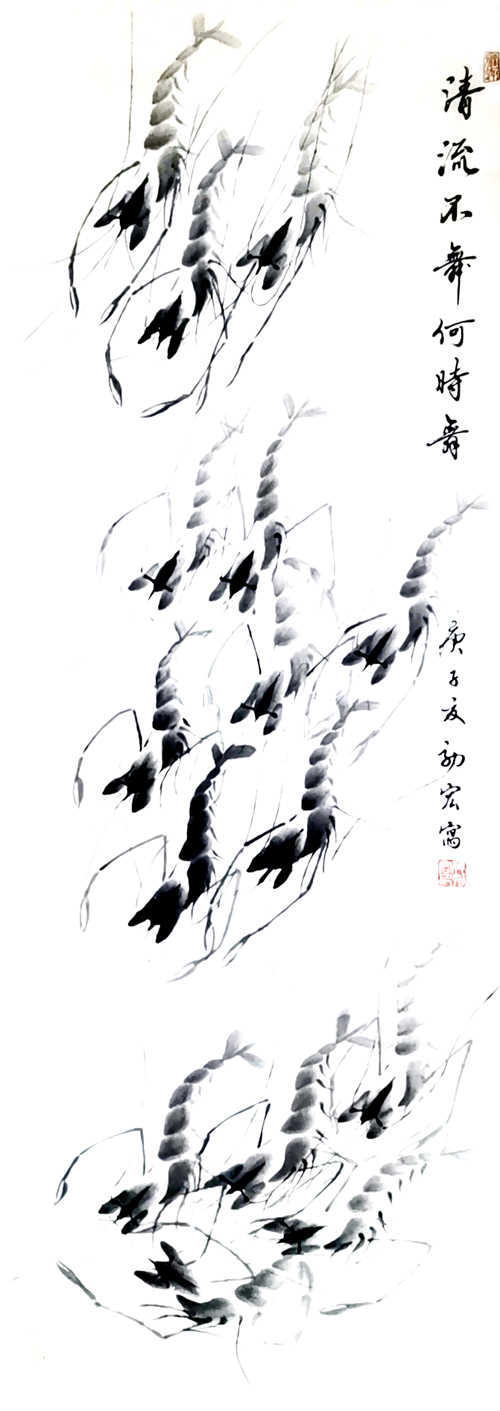 清流不舞何時舞
庚子夏 勐宏寫